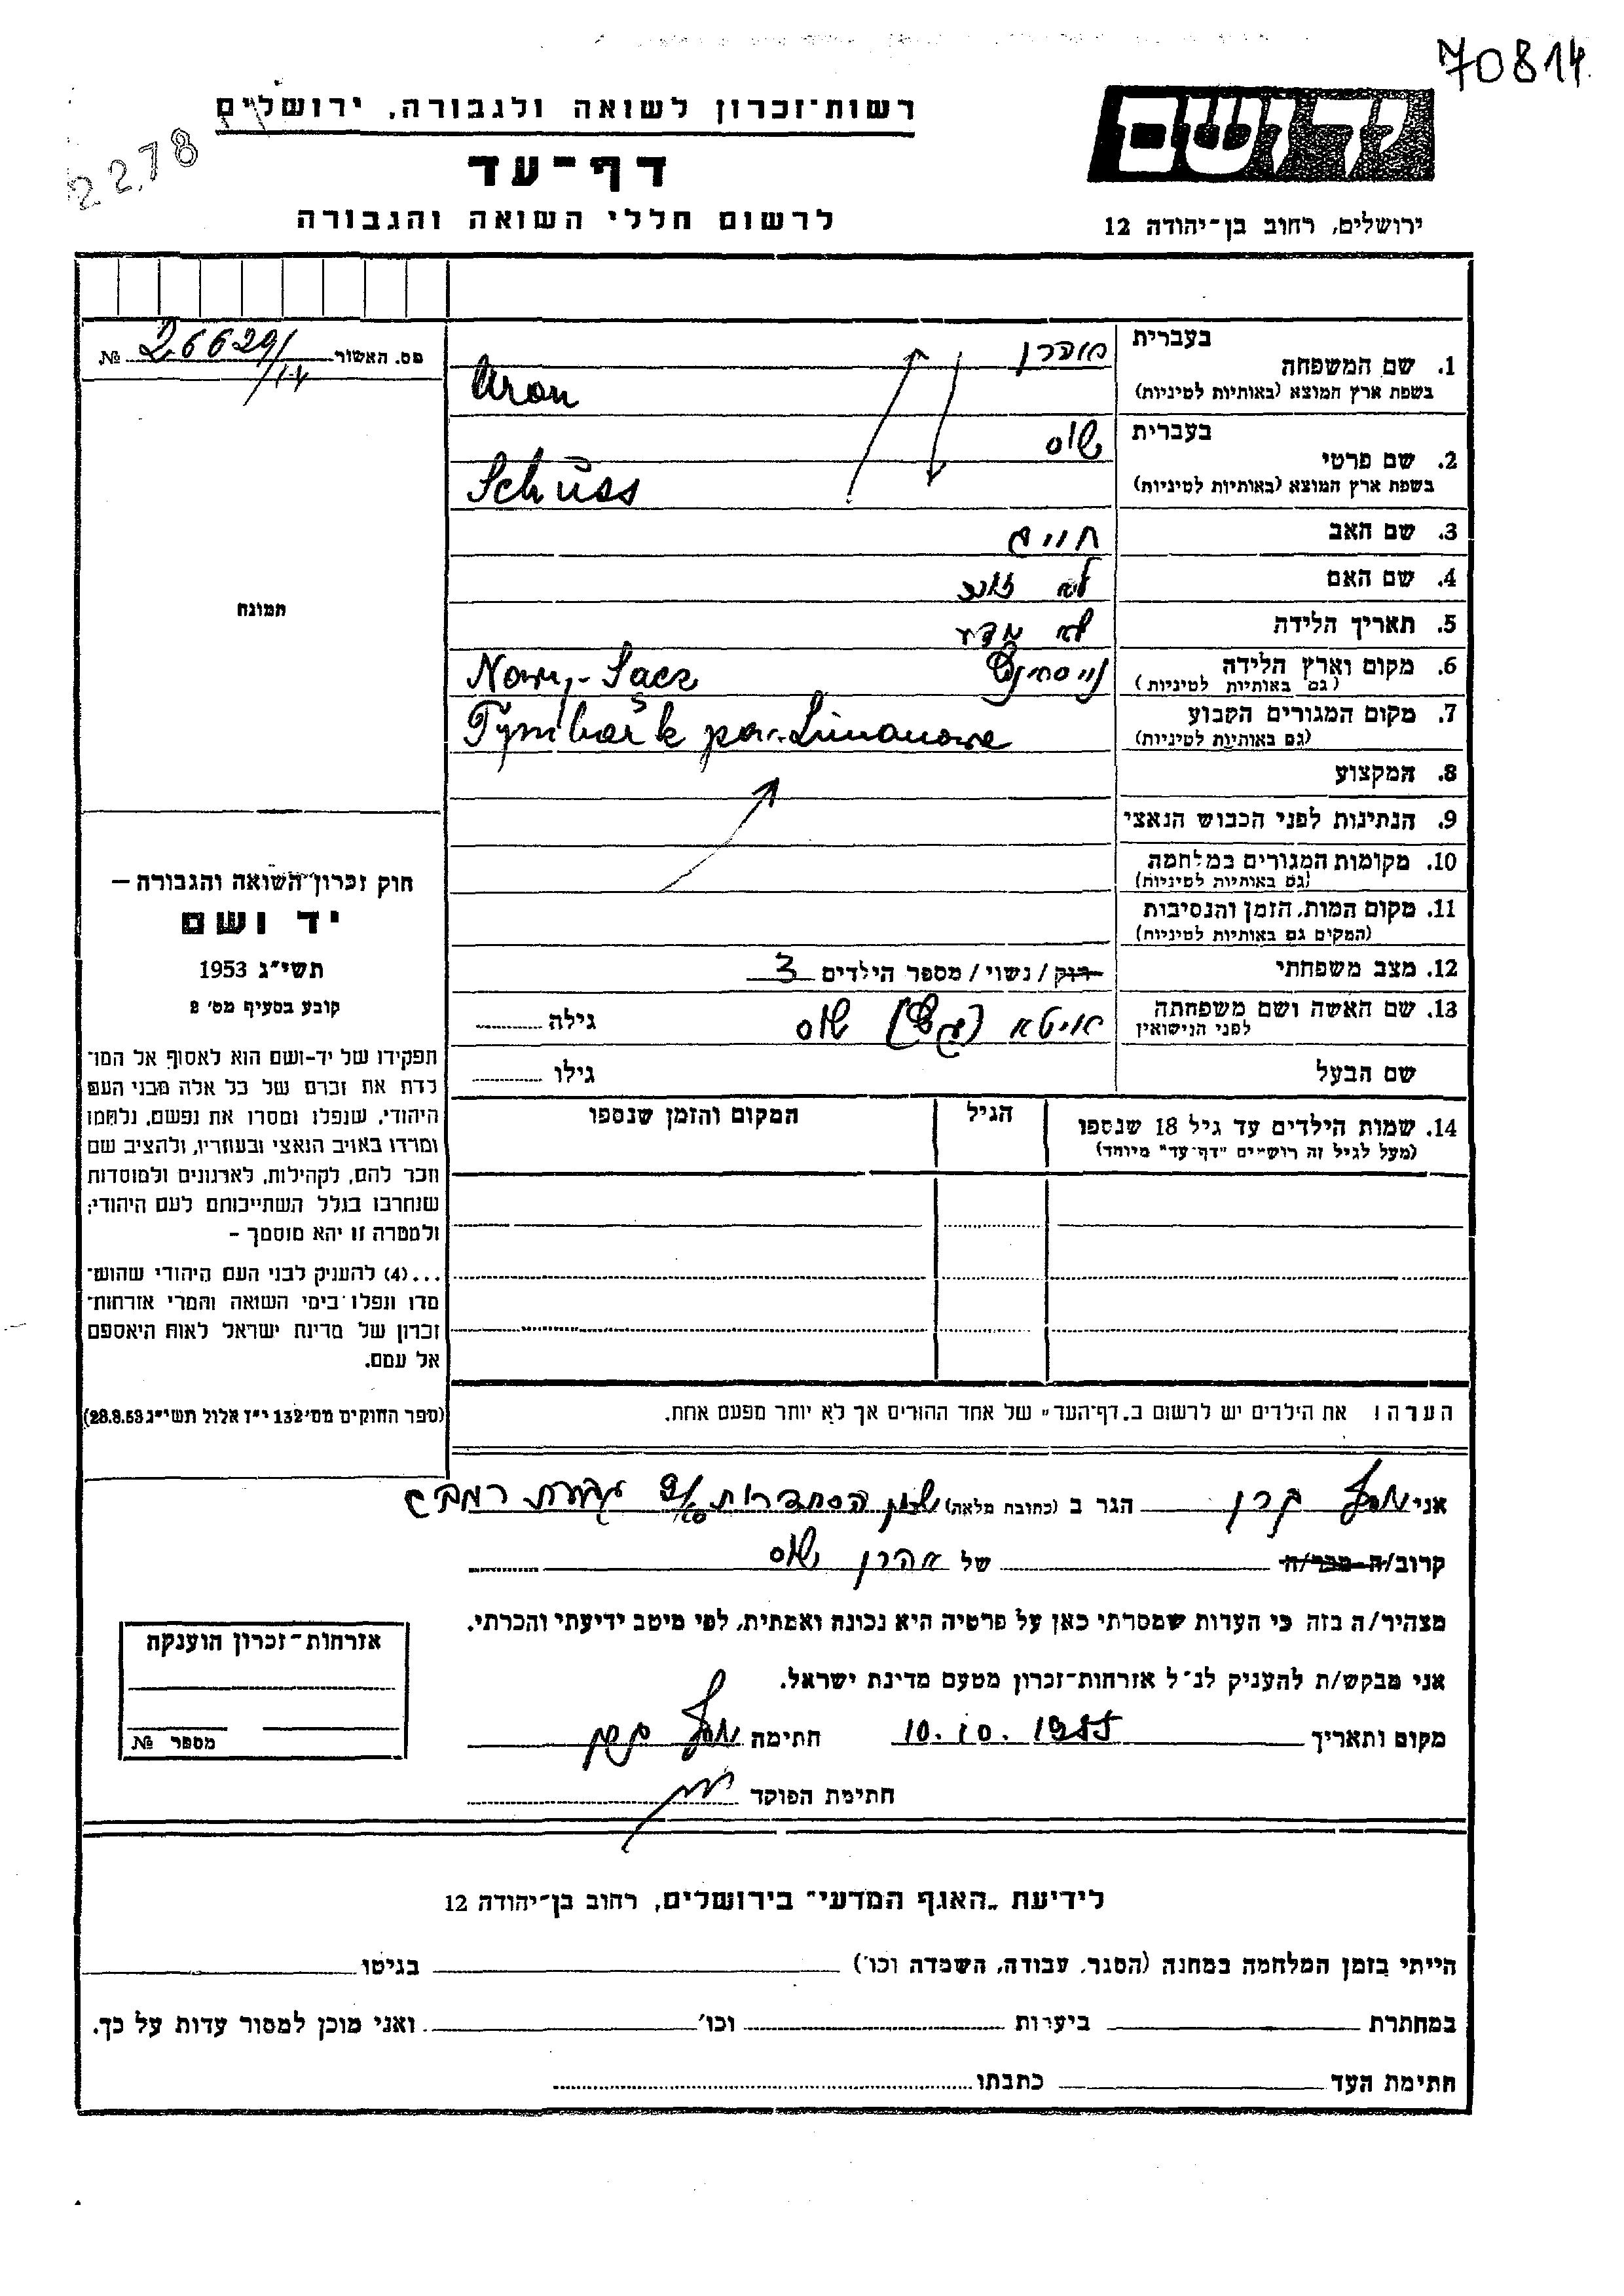 70814
ידושם
רשות־זכרון לשואה ולגבורה, ירושלים
דף־עד
2278
לרשום חללי השואה והגבורה
ירושלים, רחוב בן־יהודה 12
מס. האשור 26629/14 №
1. שם המשפחה בעברית אהרן
בשפת ארץ המוצא (באותיות לטיניות) Aron
2. שם פרטי בעברית שוס
בשפת ארץ המוצא (באותיות לטיניות) Schüss
3. שם האב חיים
4. שם האם לא
5. תאריך הלידה לא
6. מקום וארץ הלידה (גם באותיות לטיניות) Nowy-Sącz
7. מקום המגורים הקבוע (גם באותיות לטיניות) Tymbark pow. Limanowa
8. המקצוע
9. הנתינות לפני הכבוש הנאצי
10. מקומות המגורים במלחמה
(גם באותיות לטיניות)
11. מקום המות, הזמן והנסיבות
(המקום גם באותיות לטיניות)
12. מצב משפחתי רוק / נשוי / מספר הילדים 3
13. שם האשה ושם משפחתה לפני הנישואין שוס גילה
שם הבעל גילו
14. שמות הילדים עד גיל 18 שנספו הגיל המקום והזמן שנספו
(מעל לגיל זה רושמים "דף־עד" מיוחד)
הערה! את הילדים יש לרשום ב„דף־העד" של אחד ההורים אך לא יותר מפעם אחת.
תמונה
חוק זכרון השואה והגבורה —
יד ושם
תשי״ג 1953
קובע בסעיף מס׳ 2
תפקידו של יד-ושם הוא לאסוף אל המו־
לדת את זכרם של כל אלה מבני העם
היהודי, שנפלו ומסרו את נפשם, נלחמו
ומרדו באויב הנאצי ובעוזריו, ולהציב שם
וזכר להם, לקהילות, לארגונים ולמוסדות
שנחרבו בגלל השתייכותם לעם היהודי;
ולמטרה זו יהא מוסמך –
...(4) להעניק לבני העם היהודי שהוש־
מדו ונפלו בימי השואה והמרי אזרחות־
זכרון של מדינת ישראל לאות היאספם
אל עמם.
(ספר החוקים מס׳ 132 י״ז אלול תשי״ג 28.8.53)
אני הגר ב (כתובת מלאה) שכון הסתדרות
קרוב/ה מכר/ה של אהרן שוס
מצהיר/ה בזה כי העדות שמסרתי כאן על פרטיה היא נכונה ואמתית, לפי מיטב ידיעתי והכרתי.
אני מבקש/ת להעניק לנ״ל אזרחות־זכרון מטעם מדינת ישראל.
מקום ותאריך 10.10.1955 חתימה
חתימת הפוקד
אזרחות־זכרון הוענקה
מספר №
לידיעת „האגף המדעי" בירושלים, רחוב בן־יהודה 12
הייתי בזמן המלחמה במחנה (הסגר, עבודה, השמדה וכו׳) בגיטו
במחתרת ביערות וכו׳ ואני מוכן למסור עדות על כך.
חתימת העד כתבתו